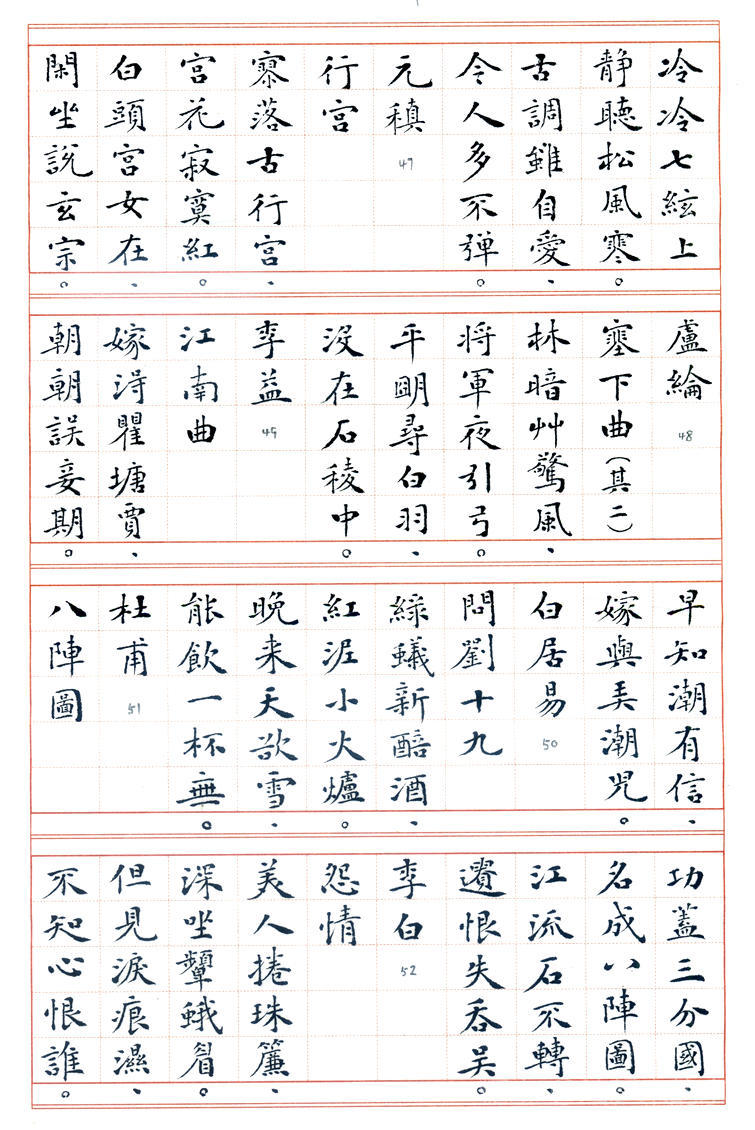 冷冷七絃上
静聽松風寒。
古調雖自愛、
今人多不彈。
元稹 47
行宮
寥落古行宮、
宮花寂寞紅。
白頭宮女在、
閑坐說玄宗。
盧綸 48
塞下曲(其二)
林暗艸驚風、
將軍夜引弓。
平朙尋白羽、
沒在石稜中。
李益 49
江南曲
嫁得瞿塘賈、
朝朝誤妾期。
早知潮有信、
嫁與弄潮兒。
白居易 50
問劉十九
綠蟻新醅酒、
紅泥小火爐。
晚来天欲雪、
能飲一杯無。
杜甫 51
八陣圖
功蓋三分國、
名成八陣圖。
江流石不轉、
遺恨失吞吳。
李白 52
怨情
美人捲珠簾、
深坐顰蛾眉。
但見淚痕濕、
不知心恨誰。